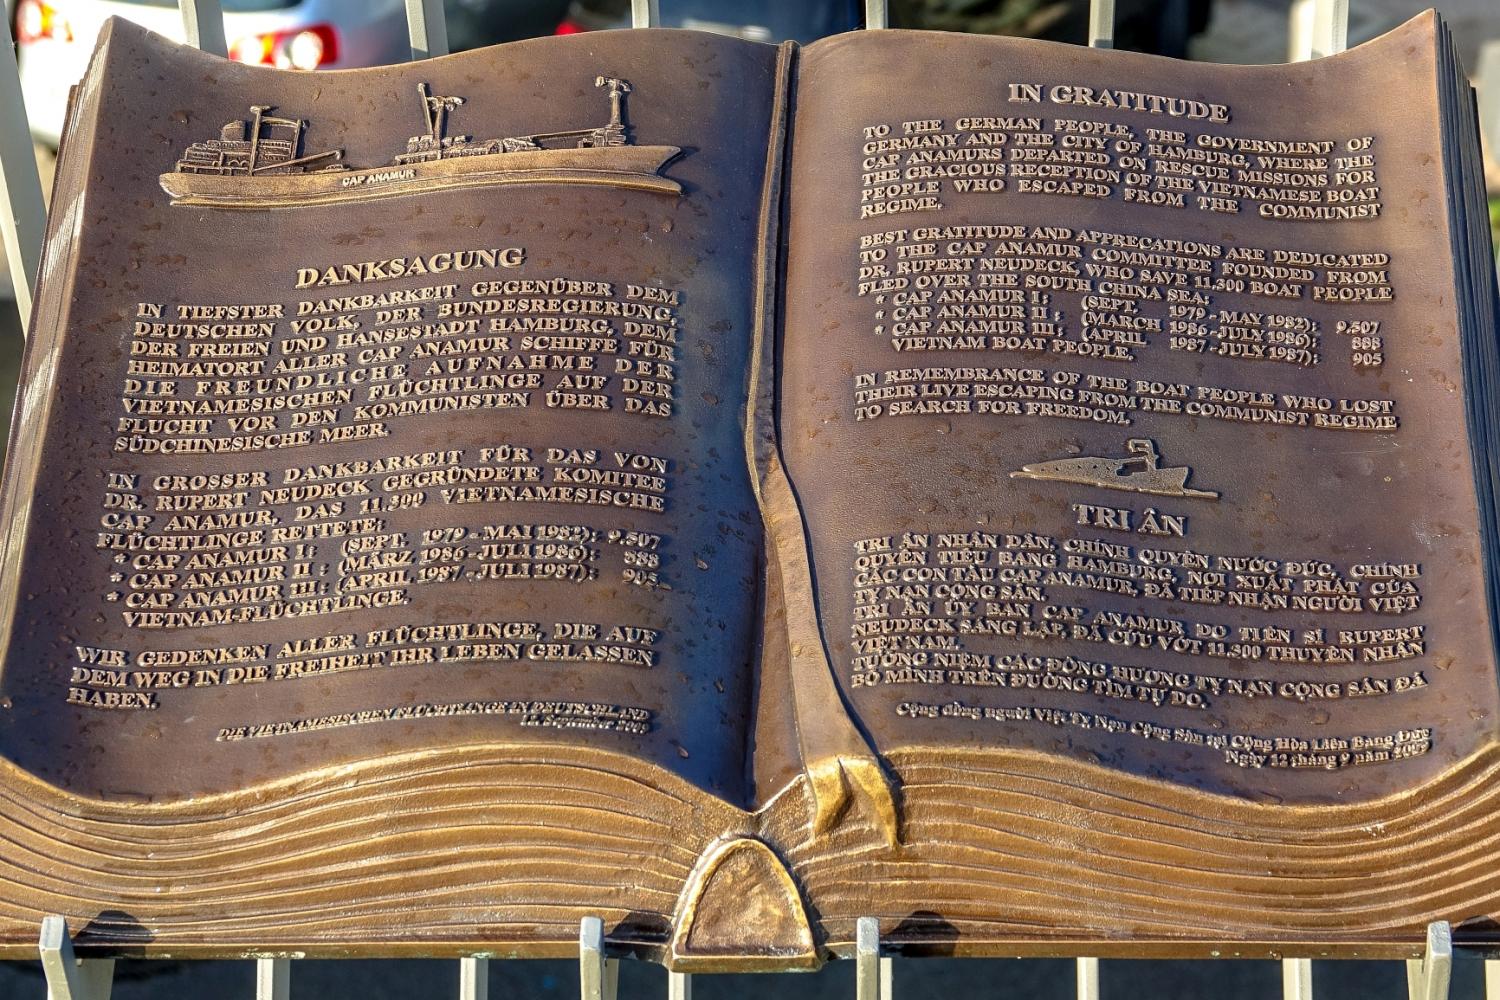 CAP ANAMUR
DANKSAGUNG
IN TIEFSTER DANKBARKEIT GEGENÜBER DEM
DEUTSCHEN VOLK, DER BUNDESREGIERUNG,
DER FREIEN UND HANSESTADT HAMBURG, DEM
HEIMATORT ALLER CAP ANAMUR SCHIFFE FÜR
DIE FREUNDLICHE AUFNAHME DER
VIETNAMESISCHEN FLÜCHTLINGE AUF DER
FLUCHT VOR DEN KOMMUNISTEN ÜBER DAS
SÜDCHINESISCHE MEER.
IN GROSSER DANKBARKEIT FÜR DAS VON
DR. RUPERT NEUDECK GEGRÜNDETE KOMITEE
CAP ANAMUR, DAS 11.300 VIETNAMESISCHE
FLÜCHTLINGE RETTETE:
* CAP ANAMUR I : (SEPT. 1979 - MAI 1982): 9.507
* CAP ANAMUR II : (MÄRZ 1986 - JULI 1986): 888
* CAP ANAMUR III : (APRIL 1987 - JULI 1987): 905
VIETNAM-FLÜCHTLINGE.
WIR GEDENKEN ALLER FLÜCHTLINGE, DIE AUF
DEM WEG IN DIE FREIHEIT IHR LEBEN GELASSEN
HABEN.
DIE VIETNAMESISCHEN FLÜCHTLINGE IN DEUTSCHLAND
September
IN GRATITUDE
TO THE GERMAN PEOPLE, THE GOVERNMENT OF
GERMANY AND THE CITY OF HAMBURG, WHERE THE
CAP ANAMURS DEPARTED ON RESCUE MISSIONS FOR
THE GRACIOUS RECEPTION OF THE VIETNAMESE BOAT
PEOPLE WHO ESCAPED FROM THE COMMUNIST
REGIME.
BEST GRATITUDE AND APPRECATIONS ARE DEDICATED
TO THE CAP ANAMUR COMMITTEE FOUNDED FROM
DR. RUPERT NEUDECK, WHO SAVE 11.300 BOAT PEOPLE
FLED OVER THE SOUTH CHINA SEA:
* CAP ANAMUR I : (SEPT. 1979 - MAY 1982): 9.507
* CAP ANAMUR II : (MARCH 1986 - JULY 1986): 888
* CAP ANAMUR III : (APRIL 1987 - JULY 1987): 905
VIETNAM BOAT PEOPLE.
IN REMEMBRANCE OF THE BOAT PEOPLE WHO LOST
THEIR LIVE ESCAPING FROM THE COMMUNIST REGIME
TO SEARCH FOR FREEDOM.
TRI ÂN
TRI ÂN NHÂN DÂN, CHÍNH QUYỀN NƯỚC ĐỨC, CHÍNH
QUYỀN TIỂU BANG HAMBURG, NƠI XUẤT PHÁT CỦA
CÁC CON TÀU CAP ANAMUR, ĐÃ TIẾP NHẬN NGƯỜI VIỆT
TỴ NẠN CỘNG SẢN.
TRI ÂN ỦY BAN CAP ANAMUR DO TIẾN SĨ RUPERT
NEUDECK SÁNG LẬP, ĐÃ CỨU VỚT 11.300 THUYỀN NHÂN
VIỆT NAM.
TƯỞNG NIỆM CÁC ĐỒNG HƯƠNG TỴ NẠN CỘNG SẢN ĐÃ
BỎ MÌNH TRÊN ĐƯỜNG TÌM TỰ DO.
Cộng đồng người Việt Tỵ Nạn Cộng Sản tại Cộng Hòa Liên Bang Đức
Ngày 12 tháng 9 năm